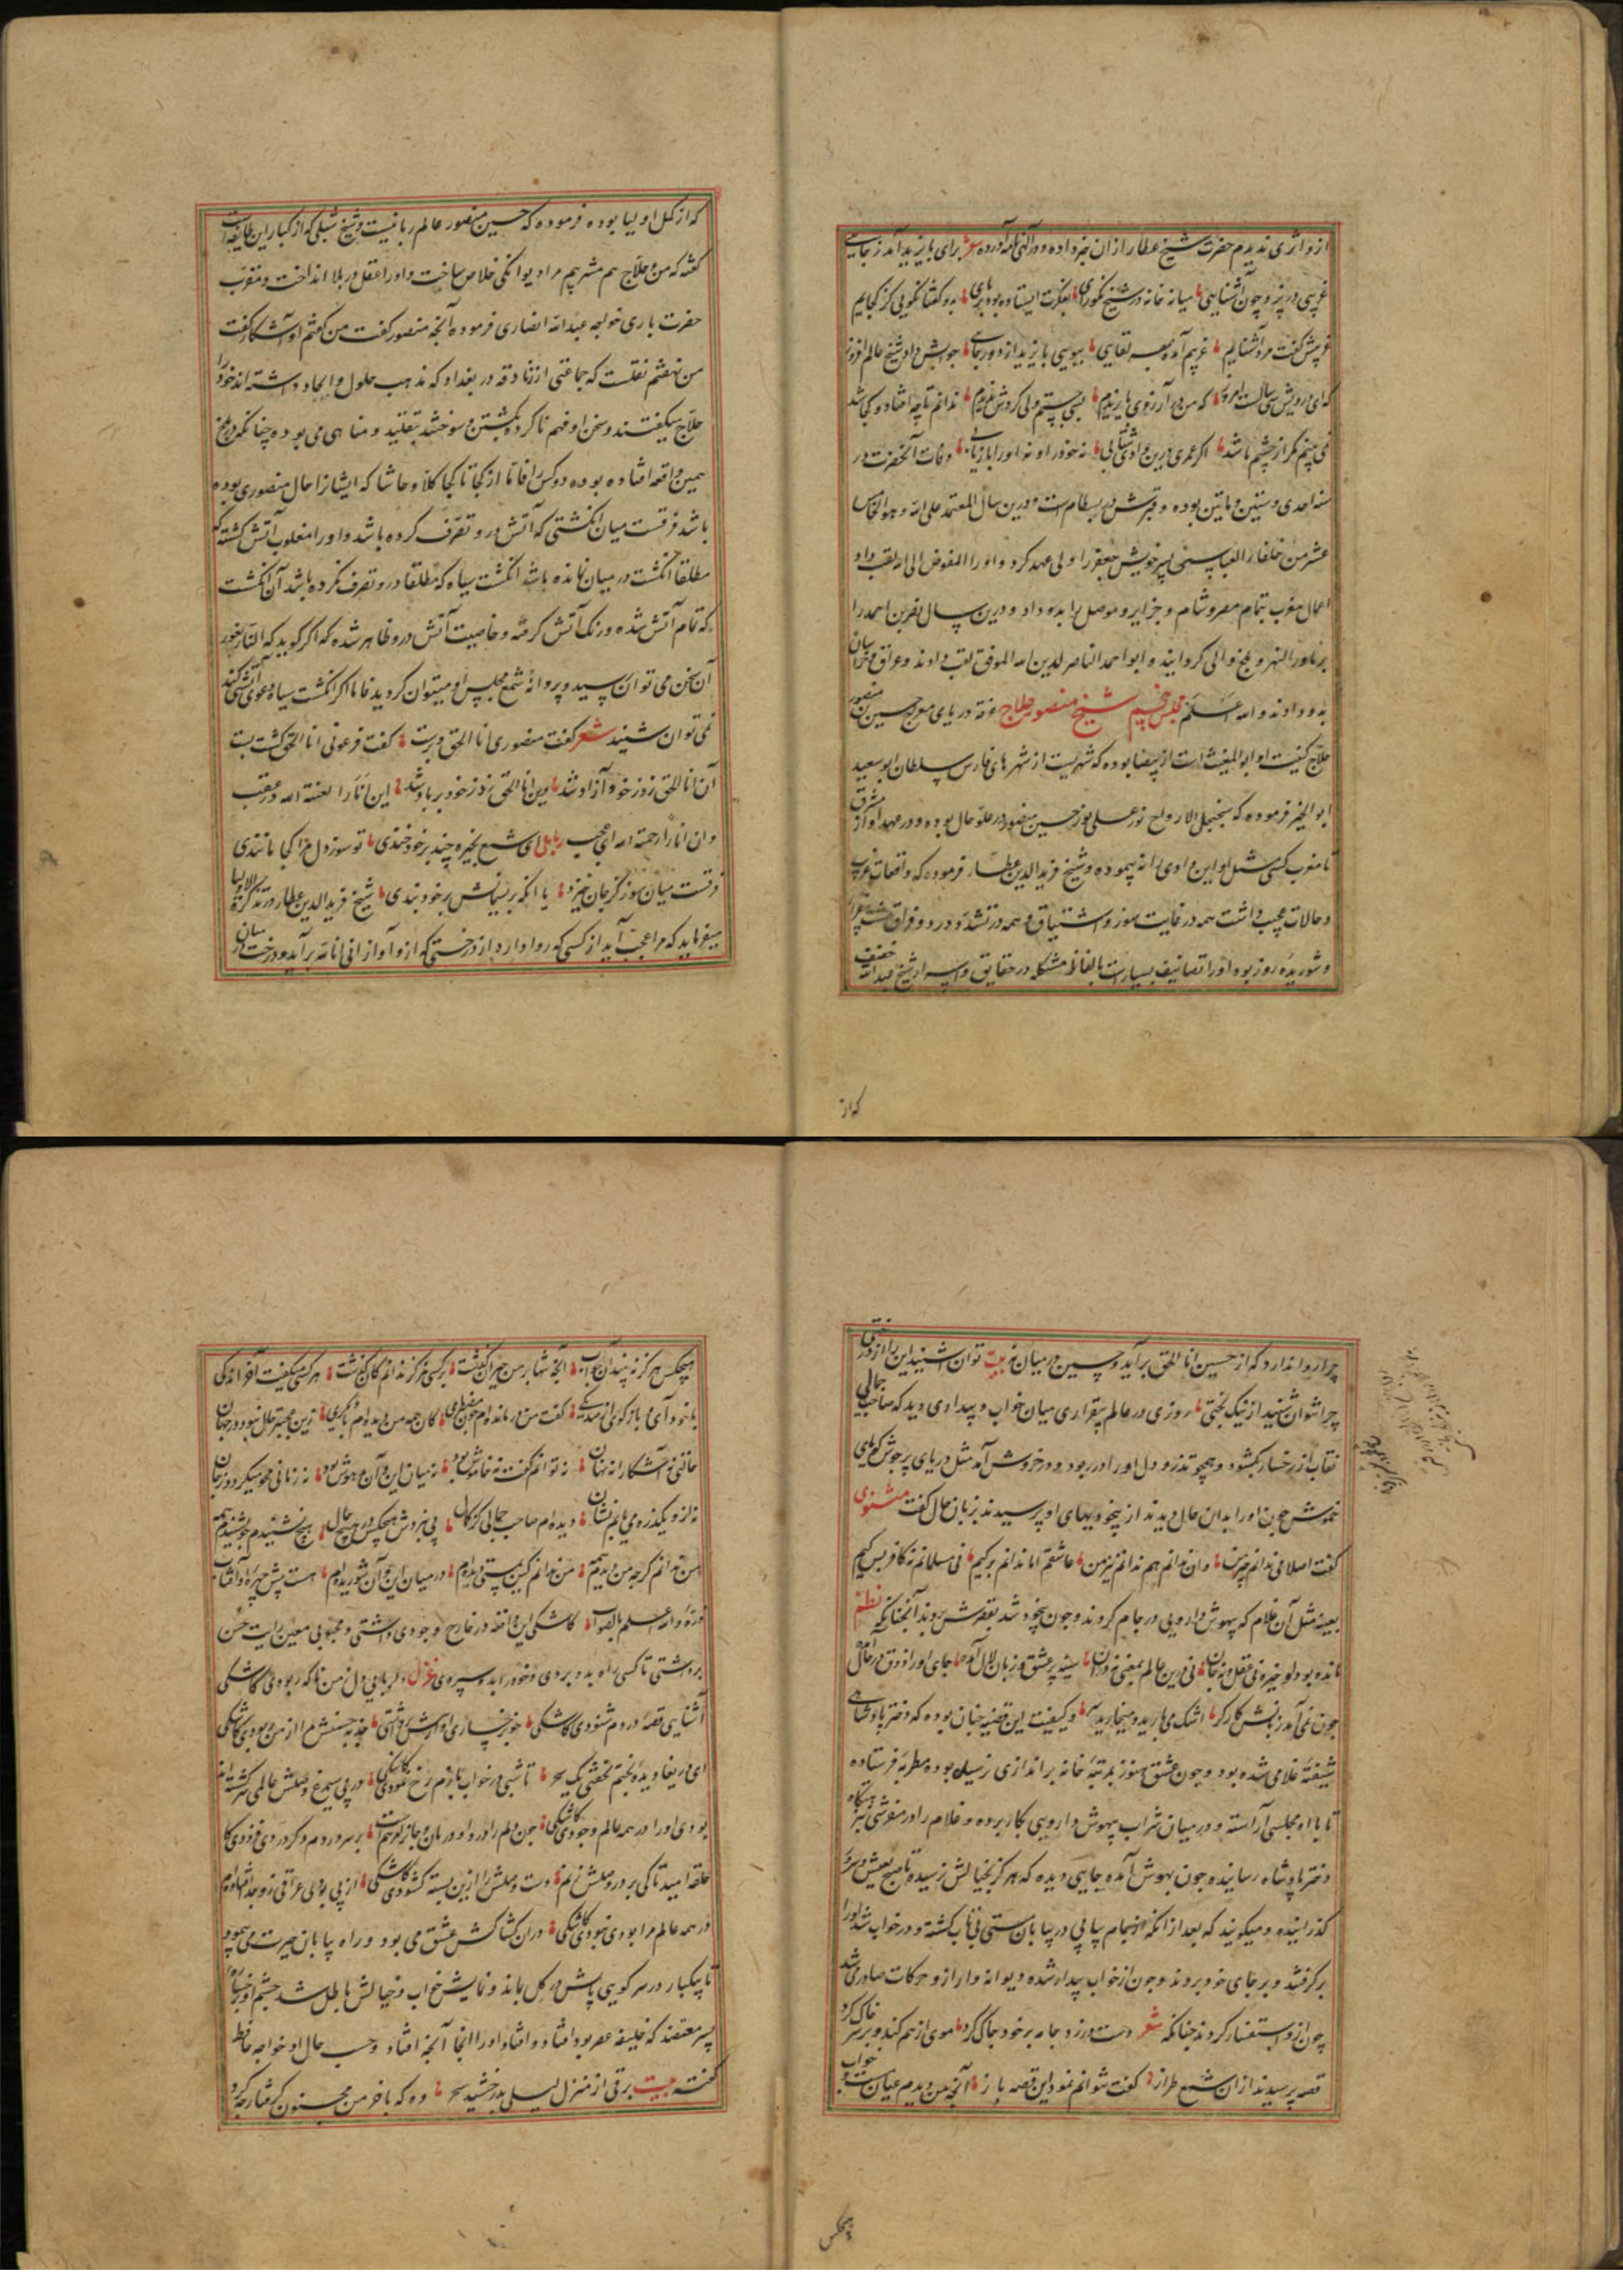 ازو اثری ندیدم حضرت شیخ عطار ازان خبر داده و در الهی نامه آورده شعر برای بایزید آمد ز جایی
غریبی در بزد چون آشنایی میانه خانه در شیخ نکورای بفکرت ایستاده بود بر پای بدو گفتا نگویی کز کجایم
غریبش گفت مرد آشنایم غریبم آمده بهر لقایی ببوی بایزید از دور جایی جوابش داد شیخ عالم افروز
که ای درویش سی سالست امروز که من در آرزوی بایزیدم بسی جستم ولی گردش ندیدم ندانم تا چه افتاد و کجا شد
نمی بینم مگر از چشم ما شد اگر عمری درین وادی شتابی نه خود را و نه او را بازیابی وفات آنحضرت در
سنه احدی و ستین و ماتین بوده و قبرش در بسطام است و درین سال المعتمد علی الله و هو الخامس
عشر من خلفاء العباسی پسر خویش جعفر را ولی عهد کرد و او را المفوض الی الله لقب داد
اعمال مغرب بتمام مصر و شام و جزایر و موصل را بدو داد و درین سال نصر بن احمد را
بر ماورا النهر و بلخ والی گردانیدند و ابو احمد الناصر لدین الله الموفق لقب دادند و عراق و خراسان
بدو دادند و الله اعلم مجلس پنجم شیخ منصور حلاج غرقه دریای مواج حسین بن منصور
حلاج کنیت او ابو المغیث است از بیضا بوده که شهریست از شهرهای فارس سلطان ابو سعید
ابو الخیر فرموده که سجنجل الارواح نور علی نور حسین منصور در علو حال بوده و در عهد او از مشرق
تا مغرب کسی مثل او این وادی را نه پیموده و شیخ فرید الدین عطار فرموده که واقعات غریب
و حالات عجب داشت همه در غایت سوز و اشتیاق و همه در تشدد و درد و فراق
و شوریده روز بود او را تصانیف بسیار است بالفاظ مشکله در حقایق و اسرار شیخ عبد الله خفیف
که از
که از کمل اولیا بوده فرموده که حسین منصور عالم ربانیست و شیخ شبلی که از کبار این طایفه است
گفته که من و حلاج هم مشربیم مرا دیوانگی خلاص ساخت و او را عقل در بلا انداخت و مقرب
حضرت باری خواجه عبد الله انصاری فرموده آنچه منصور گفت من گفتم او آشکارا گفت
من نهفتم نقلست که جماعتی از زنادقه در بغداد که مذهب حلول و اتحاد داشته اند خود را
حلاجی میگفتند و سخن او فهم ناکرده بکشتن و سوختن بتقلید و مباهی می بوده چنانکه در بلخ
همین واقعه افتاده بوده دو کس را فاما از کجا تا کجا کلا و حاشا که ایشانرا حال منصوری بوده
باشد فرقست میان انگشتی که آتش درو تصرف کرده باشد و او را مغلوب آتش گشته که
مطلقا انگشت در میان نمانده باشد انگشت سیاه که مطلقا درو تصرف نکرده باشد آن انگشت
که تمام آتش شده و رنگ آتش گرفته و خاصیت آتش درو ظاهر شده که اگر گوید که انا النار بغور
آن سخن می توان رسید و پروانه شمع مجلس او میتوان گردید فاما اگر انگشت سیاه دعوی آتشی کند
نمی توان شنید شعر گفت منصوری انا الحق و برست گفت فرعونی انا الحق گشت پست
آن انا الحق زد ز خود آزاد شد وین انا الحق زد ز خود بر باد شد این انا را لعنة الله در عقب
وان انا را رحمة الله ای عجب رباعی ای شمع بخیره چند بر خود خندی تو سوز دل مرا کجا مانندی
فرقست میان سوز کز جان خیزد یا آنکه بریسمانش بر خود بندی شیخ فرید الدین عطار در تذکرة الاولیا
میفرماید که مرا عجب آید از کسی که روا دارد از درختی که ازو آواز انی انا الله برآید و درخت در میان نه
چرا روا ندارد که از حسین انا الحق برآید و حسین در میان نه بیت توان شنیدن این راز از درختی
چرا نتوان شنید از نیک بختی روزی در عالم بیقراری میان خواب و بیداری دید که صاحب جمالی
نقاب از رخسار بگشود و همچو تذرو دل او را در ربود و در خروش آمد مثل دریای پر جوش گویای
خموش چون او را بدان حال دیدند از بیخودیهای او پرسیدند بزبان حال گفت مثنوی
گفت اصلا می ندانم چیز من وان ندانم هم ندانم نیز من عاشقم اما ندانم بر کیم نی مسلمانم نه کافر پس کیم
بعینه مثل آن غلام که بیهوش دارویی در جام کردند و چون بیخود شد بقصرش بردند آنچنانکه نظم
مانده بود او خیره نی عقل و نه جان نی درین عالم بمعنی نه در آن سینه پر عشق و زبان لال آمده جای او را ذوق در حال آمده
چون نمی آمد زبانش کارگر اشک می بارید و میخارید سر و کیفیت این قضیه چنان بوده که دختر پادشاهی
شیفته غلامی شده بود و چون عشق هنوز بمرتبه خانه براندازی نرسیده بوده مطربه فرستاده
تا با او مجلسی آراسته و در میان شراب بیهوش دارویی بکار برده و غلام را در منقوشی بنزهتگاه
دختر پادشاه رسانیده چون بهوش آمده جایی دیده که هرگز بخیالش نرسیده تا صبح بعیش
گذرانیده و میگویند که بعد از آنکه از جام پیاپی در بیابان مستی بی تاب گشته و در خواب شد او را
برگرفتند و بر جای خود بردند و چون از خواب بیدار شده دیوانه وار ازو حرکات صادر می شد
چون ازو استفسار کردند چنانکه شعر دست در زد جامه بر خود چاک کرد موی از هم کند و بر سر خاک کرد
قصه پرسیدند ازان شمع طراز گفت نتوانم نمود این قصه باز آنچه من دیدم عیان مست و خراب
هیچکس
هیچکس هرگز نه بیند آن بخواب آنچه تنها بر من حیران گذشت بر کسی هرگز ندانم کان گذشت هر کسی میگفت آخر اندکی
با خود آی و بازگوی از صد یکی گفت من درمانده ام چون مضطری کان همه من دیده ام یا دیگری زین عجبتر حال نبود در جهان
حالتی نه آشکارا نه نهان نه توانم گفت نه خاموش بود نه میان این و آن مدهوش بود نه زمانی محو میگردد ز جان
نه ازو یکذره می یابم نشان دیده ام صاحب جمالی کز کمال پی نبردش هیچکس در هیچ حال هیچ نشنیدم چو بشنیدم همه
من ندانم گرچه من دیدم همه من ندانم کین به مستی دیده ام در میان این و آن شوریده ام هست پیش چهره او آفتاب
ذره و الله اعلم بالصواب کاشکی این واقعه در خارج وجودی داشتی و محبوبی معین رایت حسن
برداشتی تا کسی راه بدو بردی و خود را بدو سپردی غزل دلربایی دل ز من ناگه ربودی کاشکی
آشنایی قصه دردم شنودی کاشکی خوب رخساری از رخ پرده داشتی جذبه حسنش مرا از من ربودی کاشکی
ای دریغا دیده بختم نخفتی یک سحر تا شبی در خواب نازم رخ نمودی کاشکی در پی سیمرغ وصلش عالمی سرگشته اند
بودی او را در همه عالم وجودی کاشکی چون دلم را درد او درمان و جانرا مرهمست بر سر دردم دگر دردی فزودی کاشکی
حلقه امید تا کی بر در وصلش زنم دست وصلش این در بسته گشودی کاشکی از پی بود عراقی زو جدا افتاده ام
در همه عالم مرا بودی نبودی کاشکی در آن کشاکش عشق می بود و راه بیابان حیرت می پیمود
تا یکبار در سر کویی پایش در گل بماند و نمایش خواب و خیالش باطل شد چشم او بر رخسار
پسر معتضد که خلیفه عصر بود افتاد و افتاد او را آنجا آنچه افتاد و حسب حال او خواجه حافظ
گفته بیت برقی از منزل لیلی بدرخشید سحر وه که با خرمن مجنون دل افگار چه کرد